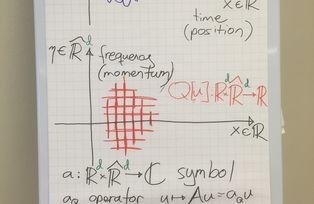 x∈ℝ
time
(position)
η∈ℝ̂ᵈ
frequency
(momentum)
Q[u]:ℝᵈ×ℝ̂ᵈ→ℝ
x∈ℝ
a: ℝᵈ×ℝ̂ᵈ→ℂ symbol
operator u↦Au=